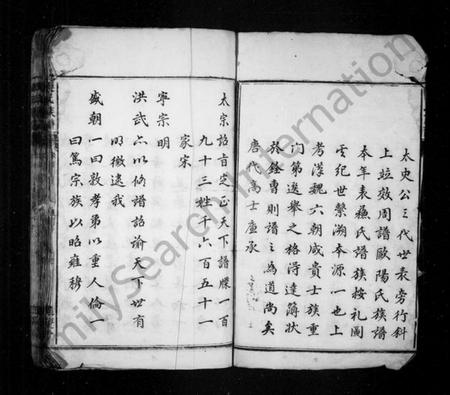 太史公三代世表旁行斜
上竝效周譜歐陽氏族譜
奉年表蘇氏譜族按礼圖
玄纪世繫溯本源一也上
考漢魏六朝咸貴士族重
门第选舉之格得達簿状
於銓則譜之為道尚矣
唐代高士廉承
太宗詔旨定正天下譜牒一百
九十三姓千六百五十一
家宋
寧宗明
洪武亦以修譜詔諭天下世有
明徵逮我
盛朝一曰敦孝弟以重人倫一
曰篤宗族以昭雍穆
FamilySearch International